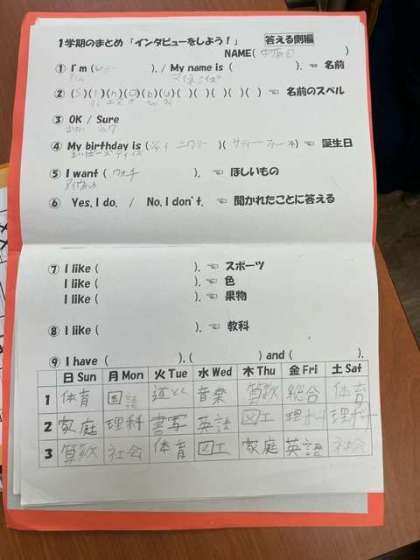 1学期のまとめ「インタビューをしよう！」 答える側編
NAME( )
① I'm ( ). / My name is ( ). ☜ 名前
② ( )( )( )( )( )( )( )( )( )( )( ) ☜ 名前のスペル
③ OK / Sure
④ My birthday is ( ). ☜ 誕生日
⑤ I want (ウォッチ ). ☜ ほしいもの
⑥ Yes, I do. / No, I don't. ☜ 聞かれたことに答える
⑦ I like ( ). ☜ スポーツ
I like ( ). ☜ 色
I like ( ). ☜ 果物
⑧ I like ( ). ☜ 教科
⑨ I have ( ), ( ) and ( ).
日 Sun 月 Mon 火 Tue 水 Wed 木 Thu 金 Fri 土 Sat
1 体育 国語 道とく 音楽 算数 総合 体育
2 家庭 理科 書写 英語 図工 理科 理科
3 算数 社会 体育 図工 家庭 英語 社会